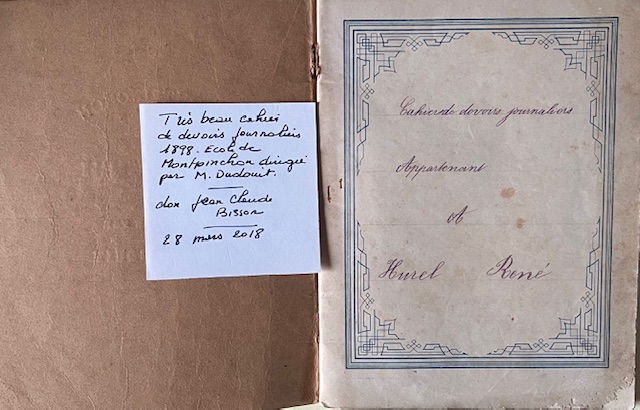 Très beau cahier
de devoirs journaliers
1898. Ecole de
Montpinchon dirigée
par M. Dudouit.
don Jean Claude
Bisson
28 mars 2018
Cahier de devoirs journaliers
Appartenant
A
Hurel René